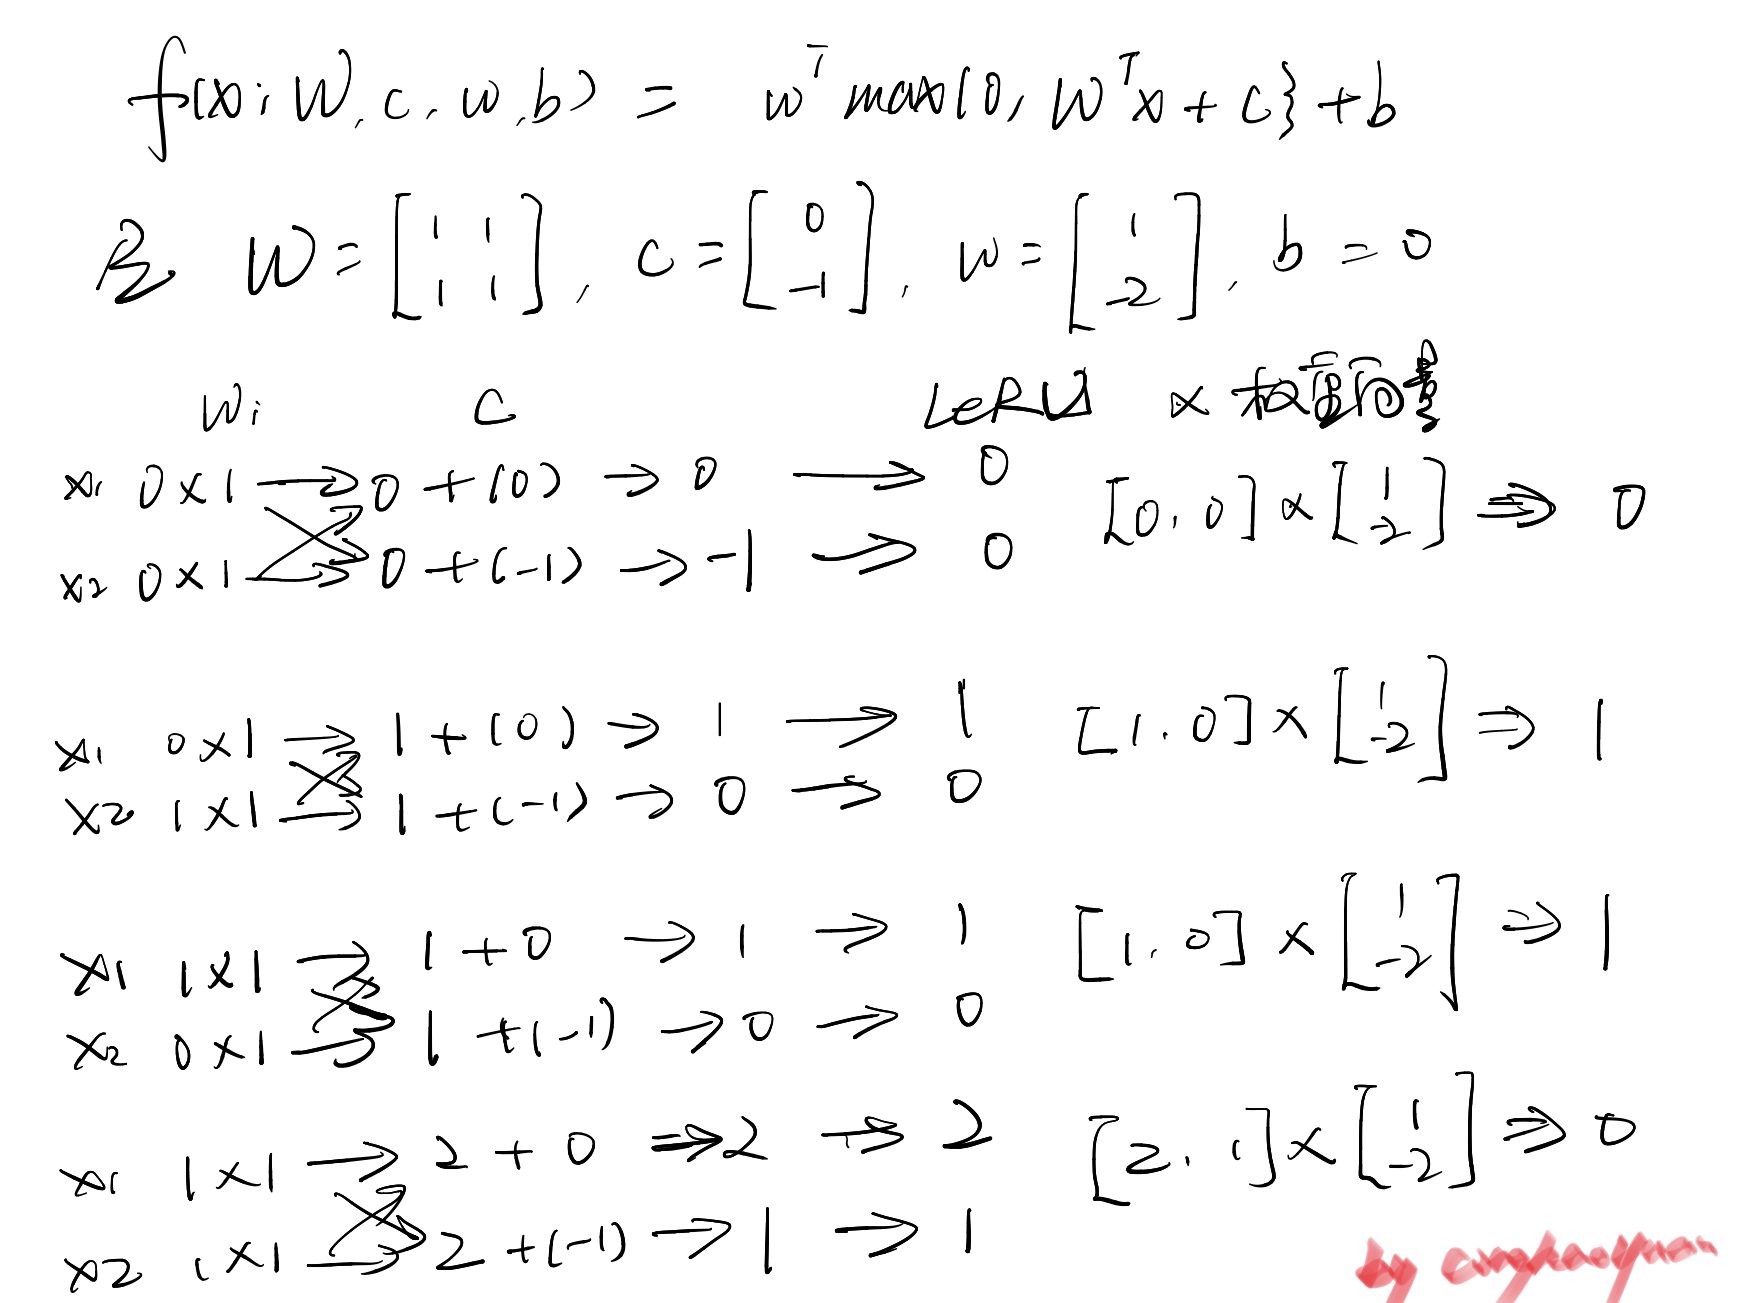 f(x; W, c, w, b) = wᵀ max{0, Wᵀx + c} + b
W = [1 1; 1 1], c = [0; -1], w = [1; -2], b = 0
Wi c LeRU × 权重向量
x1 0 × 1 → 0 + (0) → 0 → 0
[0, 0] × [1; -2] ⇒ 0
x2 0 × 1 → 0 + (-1) → -1 → 0
x1 0 × 1 → 1 + (0) → 1 → 1
[1, 0] × [1; -2] ⇒ 1
x2 1 × 1 → 1 + (-1) → 0 → 0
x1 1 × 1 → 1 + 0 → 1 → 1
[1, 0] × [1; -2] ⇒ 1
x2 0 × 1 → 1 + (-1) → 0 → 0
x1 1 × 1 → 2 + 0 → 2 → 2
[2, 1] × [1; -2] ⇒ 0
x2 1 × 1 → 2 + (-1) → 1 → 1
by